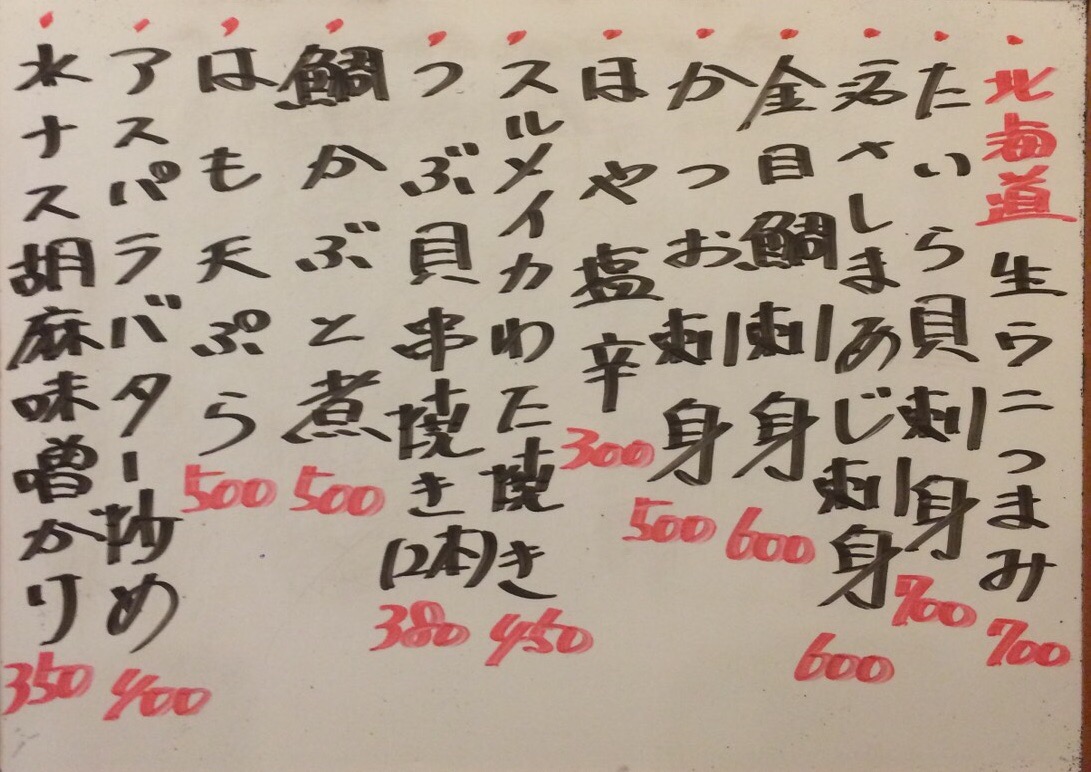 北海道生ウニつまみ 700
たいら貝刺身 700
しまあじ刺身 600
金目鯛刺身 600
かつお刺身 500
ほや塩辛 300
スルメイカわた焼き 450
つぶ貝串焼き(2本) 380
鯛かぶと煮 500
はも天ぷら 500
アスパラバター炒め 400
水ナス胡麻味噌かり 350